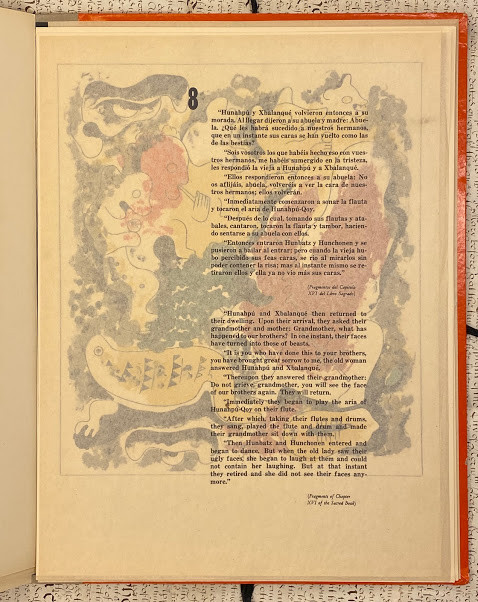 8
"Hunahpú y Xbalanqué volvieron entonces a su
morada. Al llegar dijeron a su abuela y madre: Abue-
la. ¿Qué les habrá sucedido a nuestros hermanos,
que en un instante sus caras se han vuelto como las
de las bestias?
"Sois vosotros los que habéis hecho eso con vues-
tros hermanos, me habéis sumergido en la tristeza,
les respondió la vieja a Hunahpú y a Xbalanqué.
"Ellos respondieron entonces a su abuela: No
os aflijáis, abuela, volveréis a ver la cara de nues-
tros hermanos; ellos volverán.
"Inmediatamente comenzaron a sonar la flauta
y tocaron el aria de Hunahpú-Qoy.
"Después de lo cual, tomando sus flautas y ata-
bales, cantaron, tocaron la flauta y tambor, hacien-
do sentarse a su abuela con ellos.
"Entonces entraron Hunbatz y Hunchonen y se
pusieron a bailar al entrar; pero cuando la vieja hu-
bo percibido sus feas caras, se rió al mirarlos sin
poder contener la risa; mas al instante mismo se re-
tiraron ellos y ella ya no vio más sus caras."
(Fragmentos del Capítulo
XVI del Libro Sagrado)
"Hunahpú and Xbalanqué then returned to
their dwelling. Upon their arrival, they asked their
grandmother and mother: Grandmother, what has
happened to our brothers? In one instant, their faces
have turned into those of beasts.
"It is you who have done this to your brothers,
you have brought great sorrow to me, the old woman
answered Hunahpú and Xbalanqué.
"Thereupon they answered their grandmother:
Do not grieve, grandmother, you will see the face
of our brothers again. They will return.
"Immediately they began to play the aria of
Hunahpú-Qoy on their flute.
"After which, taking their flutes and drums,
they sang, played the flute and drum and made
their grandmother sit down with them.
"Then Hunbatz and Hunchonen entered and
began to dance. But when the old lady saw their
ugly faces, she began to laugh at them and could
not contain her laughing. But at that instant
they retired and she did not see their faces any-
more."
(Fragments of Chapter
XVI of the Sacred Book)